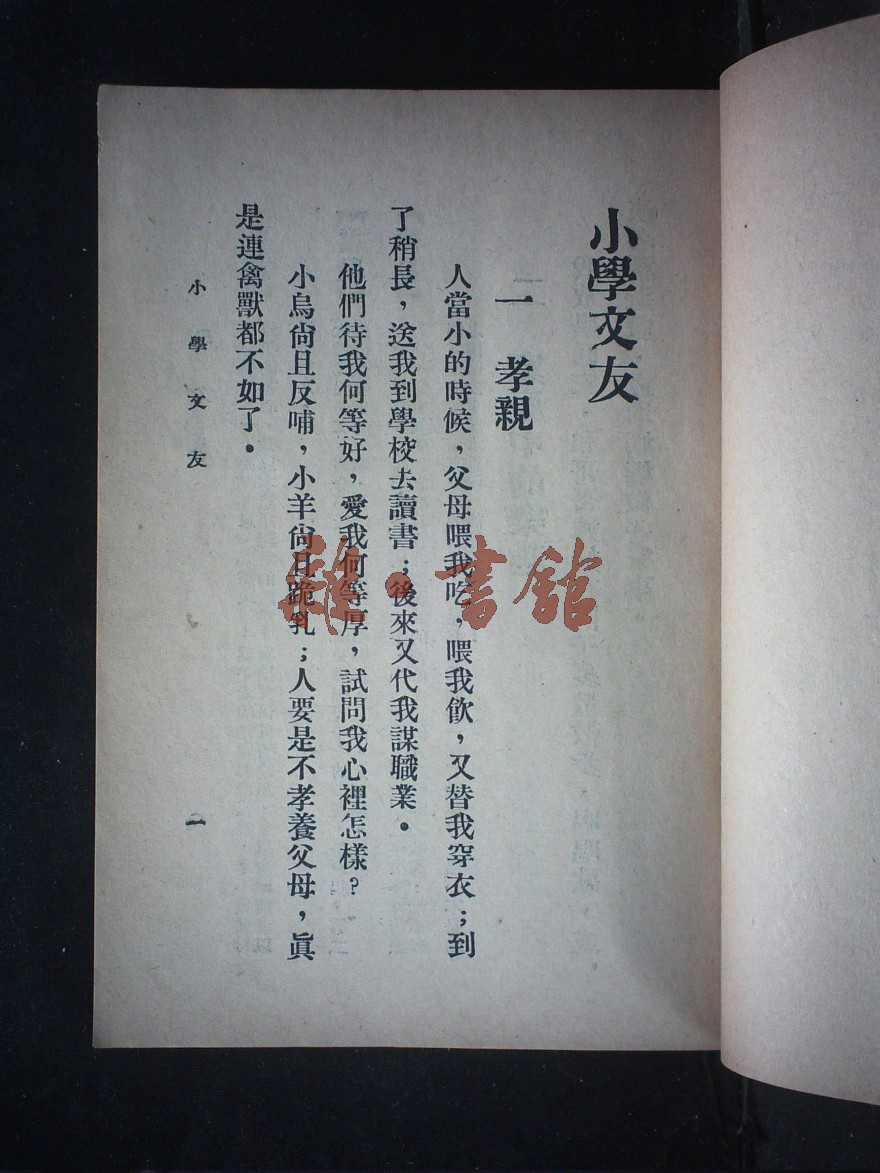 小學文友
一 孝親
人當小的時候，父母喂我吃，喂我飲，又替我穿衣；到
了稍長，送我到學校去讀書；後來又代我謀職業．
他們待我何等好，愛我何等厚，試問我心裡怎樣？
小烏尙且反哺，小羊尙且跪乳；人要是不孝養父母，眞
是連禽獸都不如了．
小學文友
雜·書館